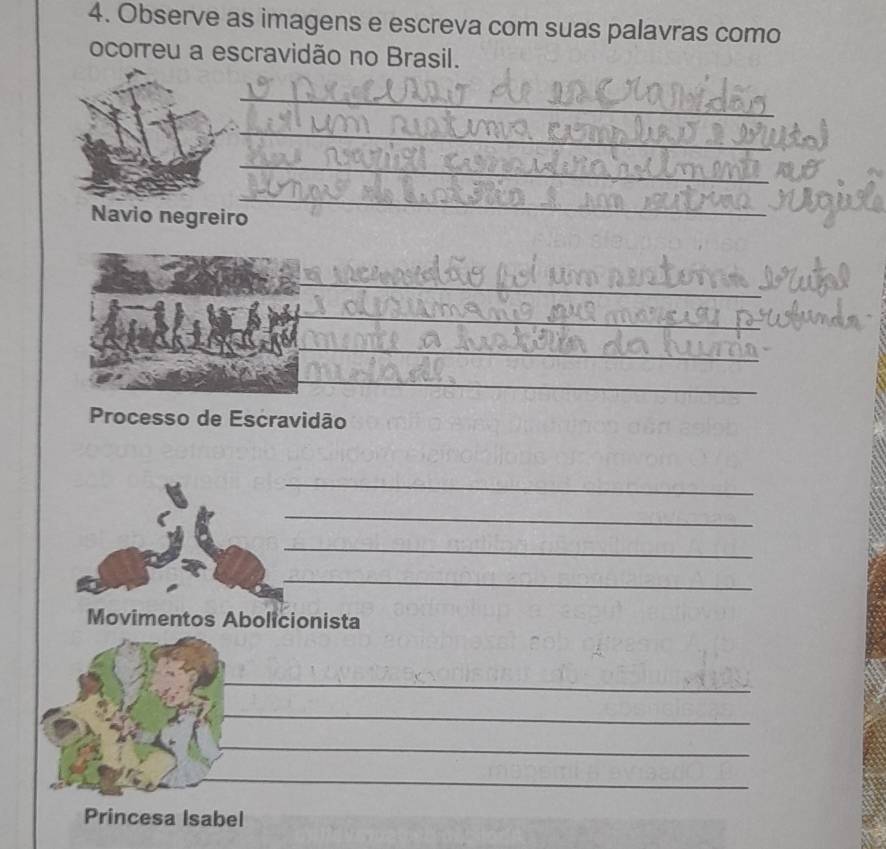 4. Observe as imagens e escreva com suas palavras como
ocorreu a escravidão no Brasil.
o processo de escravidão
foi um sistema complexo e brutal
que variou consideravelmente ao
longo da história e em outras regiõe
Navio negreiro
a escravidão foi um sistema brutal
e desumano que marcou profunda-
mente a história da huma-
nidade.
Processo de Escravidão
Movimentos Abolicionista
Princesa Isabel